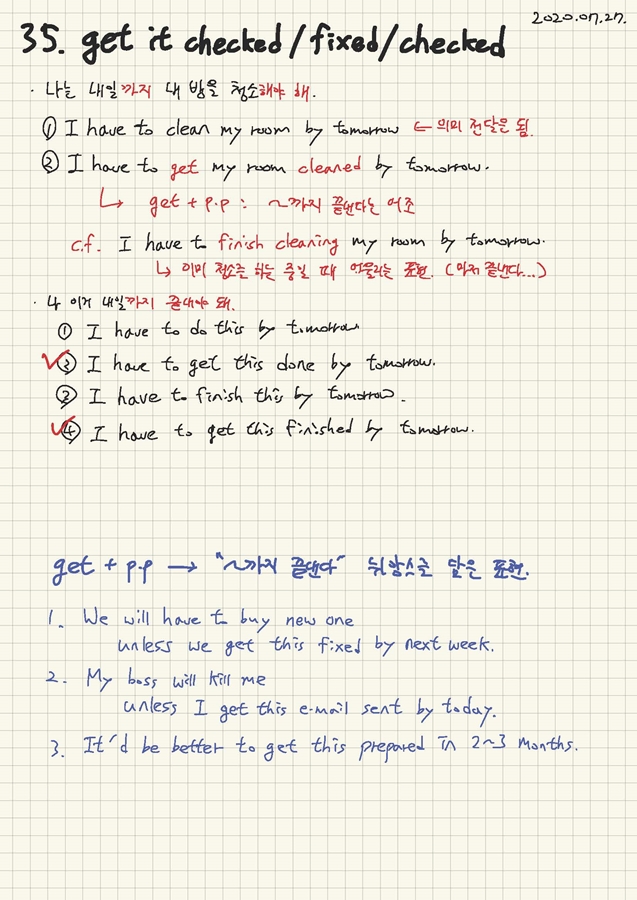 2020.07.27.
35. get it checked/fixed/checked
· 나는 내일까지 내 방을 청소해야 해.
① I have to clean my room by tomorrow ← 의미 전달은 됨.
② I have to get my room cleaned by tomorrow.
↳ get + p.p : ~까지 끝낸다는 어조
c.f. I have to finish cleaning my room by tomorrow.
↳ 이미 청소를 하는 중일 때 어울리는 표현. (마저 끝낸다...)
· 나 이거 내일까지 끝내야 돼.
① I have to do this by tomorrow
② I have to get this done by tomorrow.
③ I have to finish this by tomorrow.
④ I have to get this finished by tomorrow.
get + p.p → "~까지 끝낸다" 뉘앙스를 담은 표현.
1. We will have to buy new one
unless we get this fixed by next week.
2. My boss will kill me
unless I get this e-mail sent by today.
3. It'd be better to get this prepared in 2~3 months.